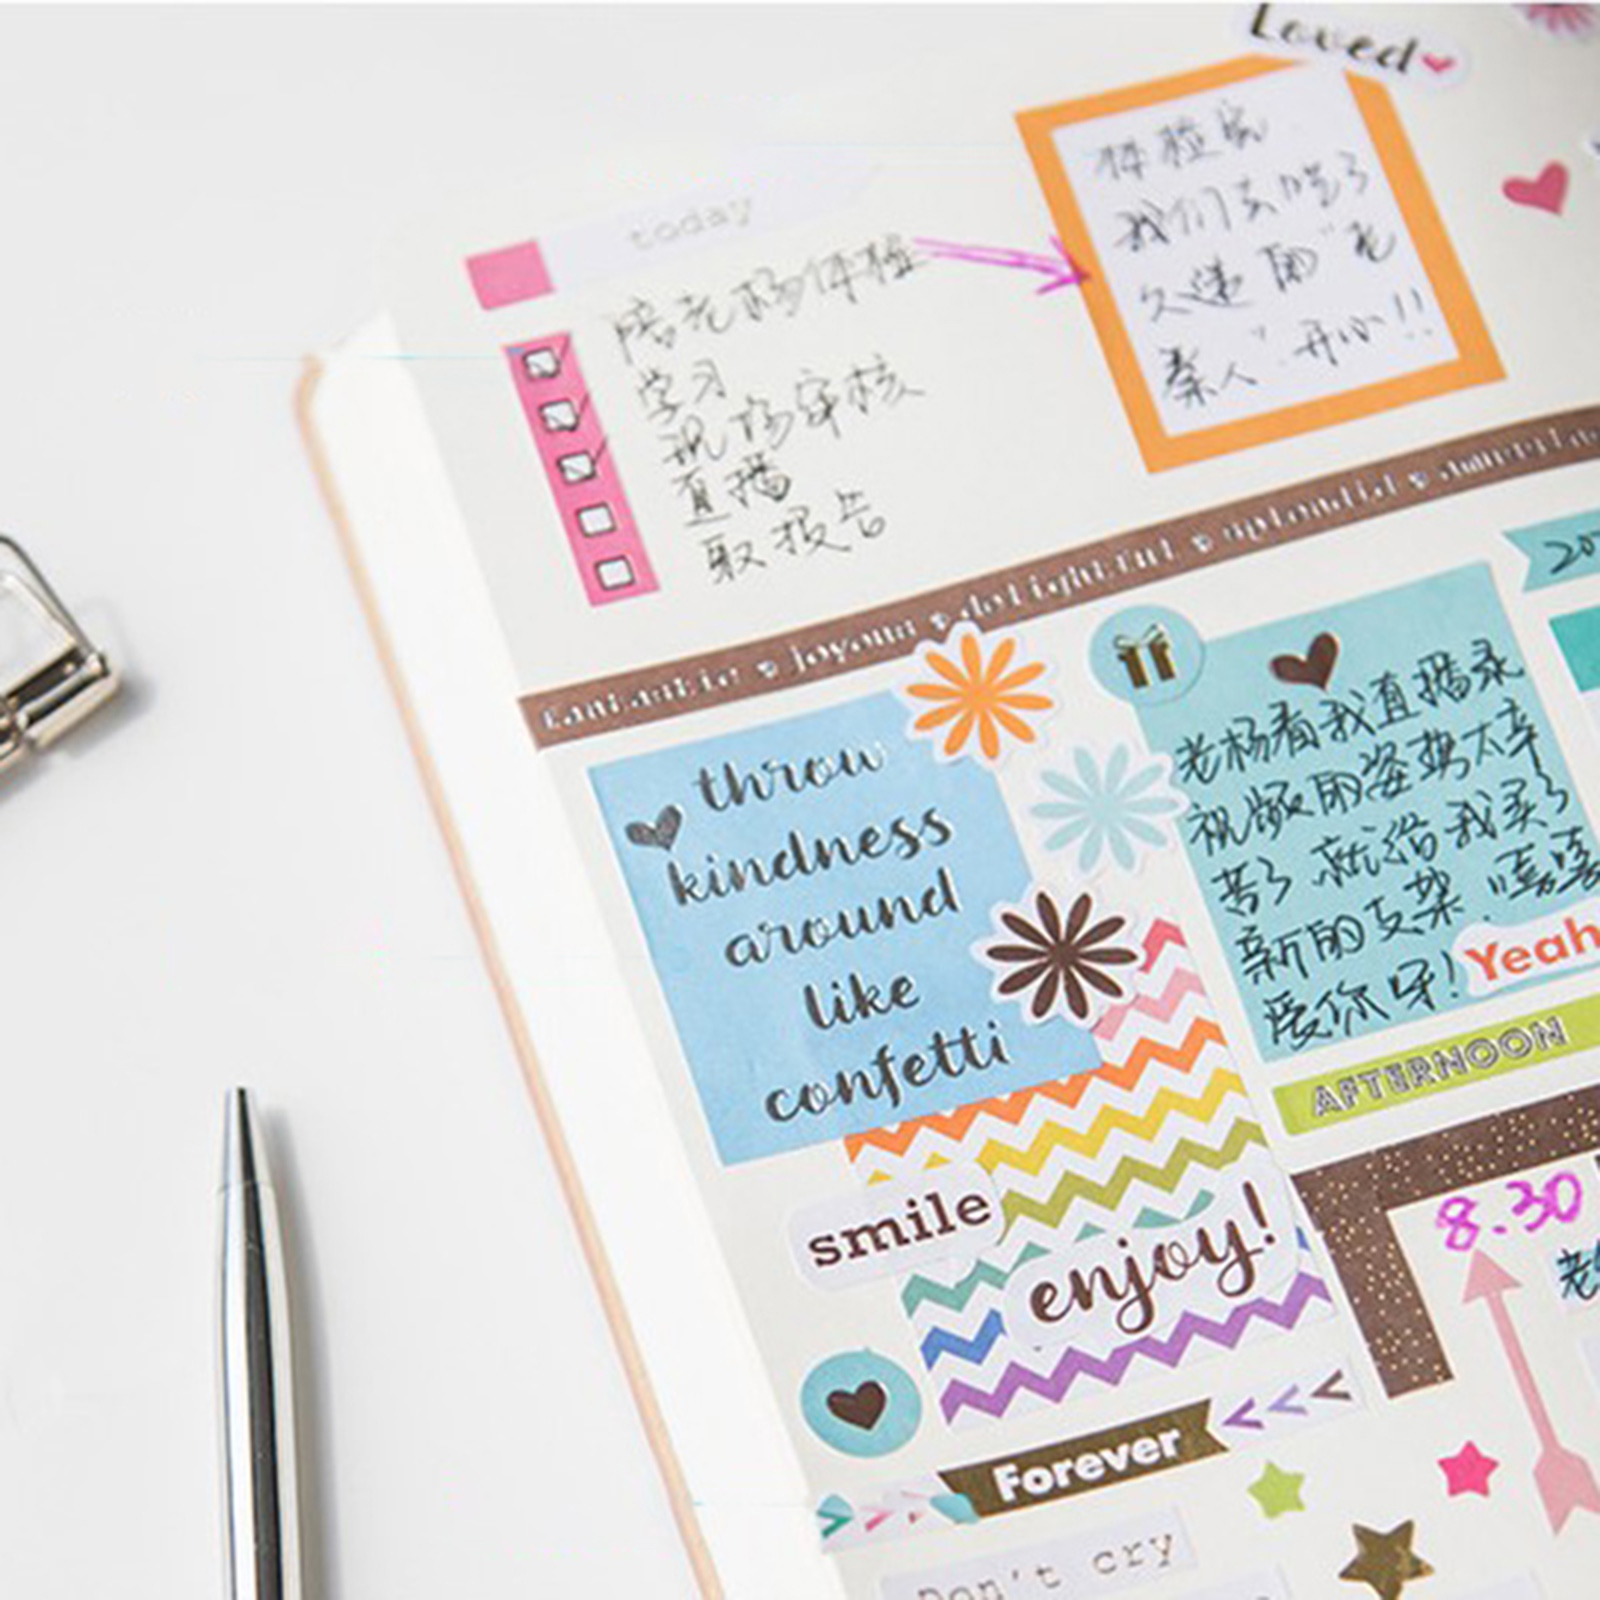 Loved
today
陪老杨体检
学习
现场审核
直播
取报告
体检完
我们去吃了
久违的“老
秦人”.开心!!
fantastic joyous delightful splendid
throw
kindness
around
like
confetti
老杨看我直播录
视频的姿势太辛
苦了.就给我买了
新的支架.嘻嘻
爱你呀!
Yeah
AFTERNOON
smile
enjoy!
8.30
Forever
Don't cry